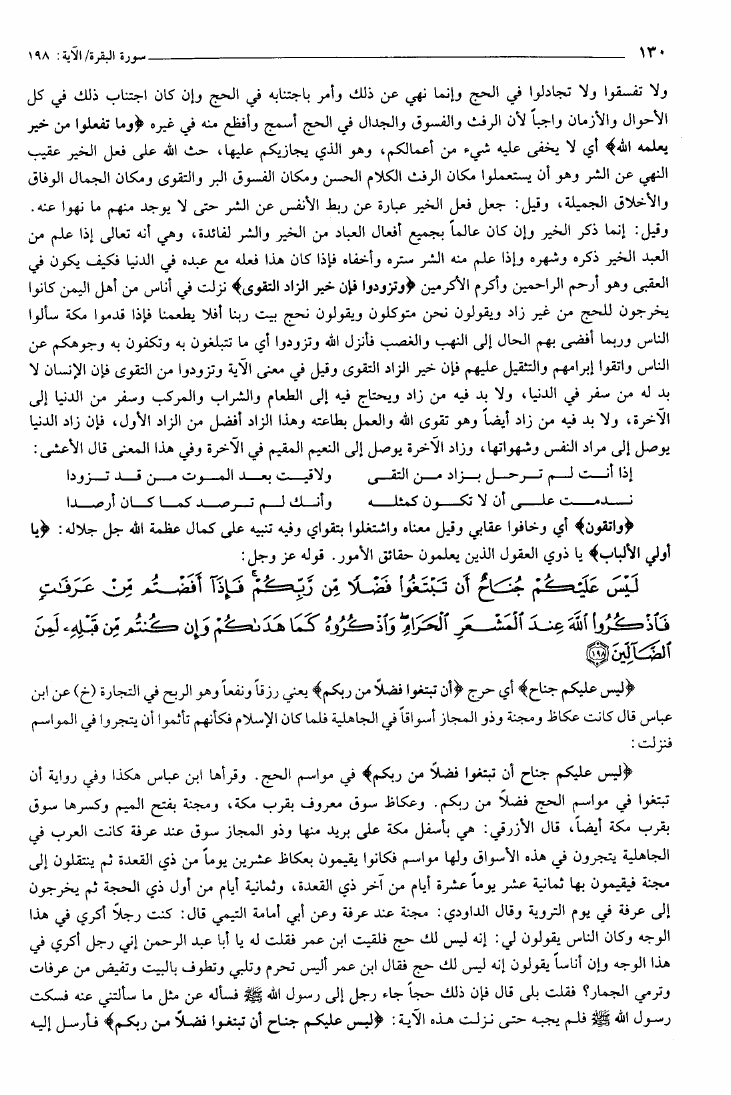 ١٣٠ سورة البقرة/ الآية: ١٩٨
ولا تفسقوا ولا تجادلوا في الحج وإنما نهي عن ذلك وأمر باجتنابه في الحج وإن كان اجتناب ذلك في كل
الأحوال والأزمان واجباً لأن الرفث والفسوق والجدال في الحج أسمج وأفظع منه في غيره ﴿وما تفعلوا من خير
يعلمه الله﴾ أي لا يخفى عليه شيء من أعمالكم، وهو الذي يجازيكم عليها، حث الله على فعل الخير عقيب
النهي عن الشر وهو أن يستعملوا مكان الرفث الكلام الحسن ومكان الفسوق البر والتقوى ومكان الجمال الوفاق
والأخلاق الجميلة، وقيل: جعل فعل الخير عبارة عن ربط الأنفس عن الشر حتى لا يوجد منهم ما نهوا عنه.
وقيل: إنما ذكر الخير وإن كان عالماً بجميع أفعال العباد من الخير والشر لفائدة، وهي أنه تعالى إذا علم من
العبد الخير ذكره وشهره وإذا علم منه الشر ستره وأخفاه فإذا كان هذا فعله مع عبده في الدنيا فكيف يكون في
العقبى وهو أرحم الراحمين وأكرم الأكرمين ﴿وتزودوا فإن خير الزاد التقوى﴾ نزلت في أناس من أهل اليمن كانوا
يخرجون للحج من غير زاد ويقولون نحن متوكلون ويقولون نحج بيت ربنا أفلا يطعمنا فإذا قدموا مكة سألوا
الناس وربما أفضى بهم الحال إلى النهب والغصب فأنزل الله وتزودوا أي ما تتبلغون به وتكفون به وجوهكم عن
الناس واتقوا إبرامهم والتثقيل عليهم فإن خير الزاد التقوى وقيل في معنى الآية وتزودوا من التقوى فإن الإنسان لا
بد له من سفر في الدنيا، ولا بد فيه من زاد ويحتاج فيه إلى الطعام والشراب والمركب وسفر من الدنيا إلى
الآخرة، ولا بد فيه من زاد أيضاً وهو تقوى الله والعمل بطاعته وهذا الزاد أفضل من الزاد الأول، فإن زاد الدنيا
يوصل إلى مراد النفس وشهواتها، وزاد الآخرة يوصل إلى النعيم المقيم في الآخرة وفي هذا المعنى قال الأعشى:
إذا أنت لم ترحل بزاد من التقى ولاقيت بعد الموت من قد تزودا
ندمت على أن لا تكون كمثله وأنك لم ترصد كما كان أرصدا
﴿واتقون﴾ أي وخافوا عقابي وقيل معناه واشتغلوا بتقواي وفيه تنبيه على كمال عظمة الله جل جلاله: ﴿يا
أولي الألباب﴾ يا ذوي العقول الذين يعلمون حقائق الأمور. قوله عز وجل:
لَيْسَ عَلَيْكُمْ جُنَاحٌ أَن تَبْتَغُوا۟ فَضْلًا مِّن رَّبِّكُمْ ۚ فَإِذَآ أَفَضْتُم مِّنْ عَرَفَٰتٍ
فَٱذْكُرُوا۟ ٱللَّهَ عِندَ ٱلْمَشْعَرِ ٱلْحَرَامِ ۖ وَٱذْكُرُوهُ كَمَا هَدَىٰكُمْ وَإِن كُنتُم مِّن قَبْلِهِۦ لَمِنَ
ٱلضَّآلِّينَ ١٩٨
﴿ليس عليكم جناح﴾ أي حرج ﴿أن تبتغوا فضلاً من ربكم﴾ يعني رزقاً ونفعاً وهو الربح في التجارة (خ) عن ابن
عباس قال كانت عكاظ ومجنة وذو المجاز أسواقاً في الجاهلية فلما كان الإسلام فكأنهم تأثموا أن يتجروا في المواسم
فنزلت:
﴿ليس عليكم جناح أن تبتغوا فضلاً من ربكم﴾ في مواسم الحج. وقرأها ابن عباس هكذا وفي رواية أن
تبتغوا في مواسم الحج فضلاً من ربكم. وعكاظ سوق معروف بقرب مكة، ومجنة بفتح الميم وكسرها سوق
بقرب مكة أيضاً، قال الأزرقي: هي بأسفل مكة على بريد منها وذو المجاز سوق عند عرفة كانت العرب في
الجاهلية يتجرون في هذه الأسواق ولها مواسم فكانوا يقيمون بعكاظ عشرين يوماً من ذي القعدة ثم ينتقلون إلى
مجنة فيقيمون بها ثمانية عشر يوماً عشرة أيام من آخر ذي القعدة، وثمانية أيام من أول ذي الحجة ثم يخرجون
إلى عرفة في يوم التروية وقال الداودي: مجنة عند عرفة وعن أبي أمامة التيمي قال: كنت رجلاً أكري في هذا
الوجه وكان الناس يقولون لي: إنه ليس لك حج فلقيت ابن عمر فقلت له يا أبا عبد الرحمن إني رجل أكري في
هذا الوجه وإن أناساً يقولون إنه ليس لك حج فقال ابن عمر أليس تحرم وتلبي وتطوف بالبيت وتفيض من عرفات
وترمي الجمار؟ فقلت بلى قال فإن ذلك حجاً جاء رجل إلى رسول الله ﷺ فسأله عن مثل ما سألتني عنه فسكت
رسول الله ﷺ فلم يجبه حتى نزلت هذه الآية: ﴿ليس عليكم جناح أن تبتغوا فضلاً من ربكم﴾ فأرسل إليه